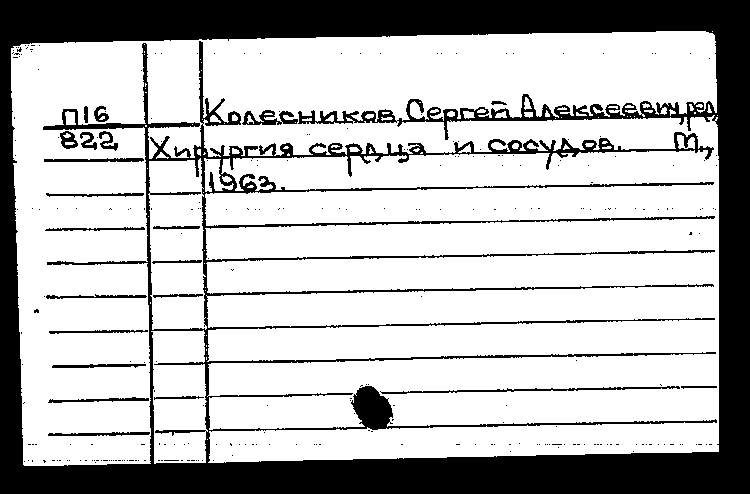 П16 Колесников, Сергей Алексеевич, ред.
822 Хирургия сердца и сосудов. М.,
1963.